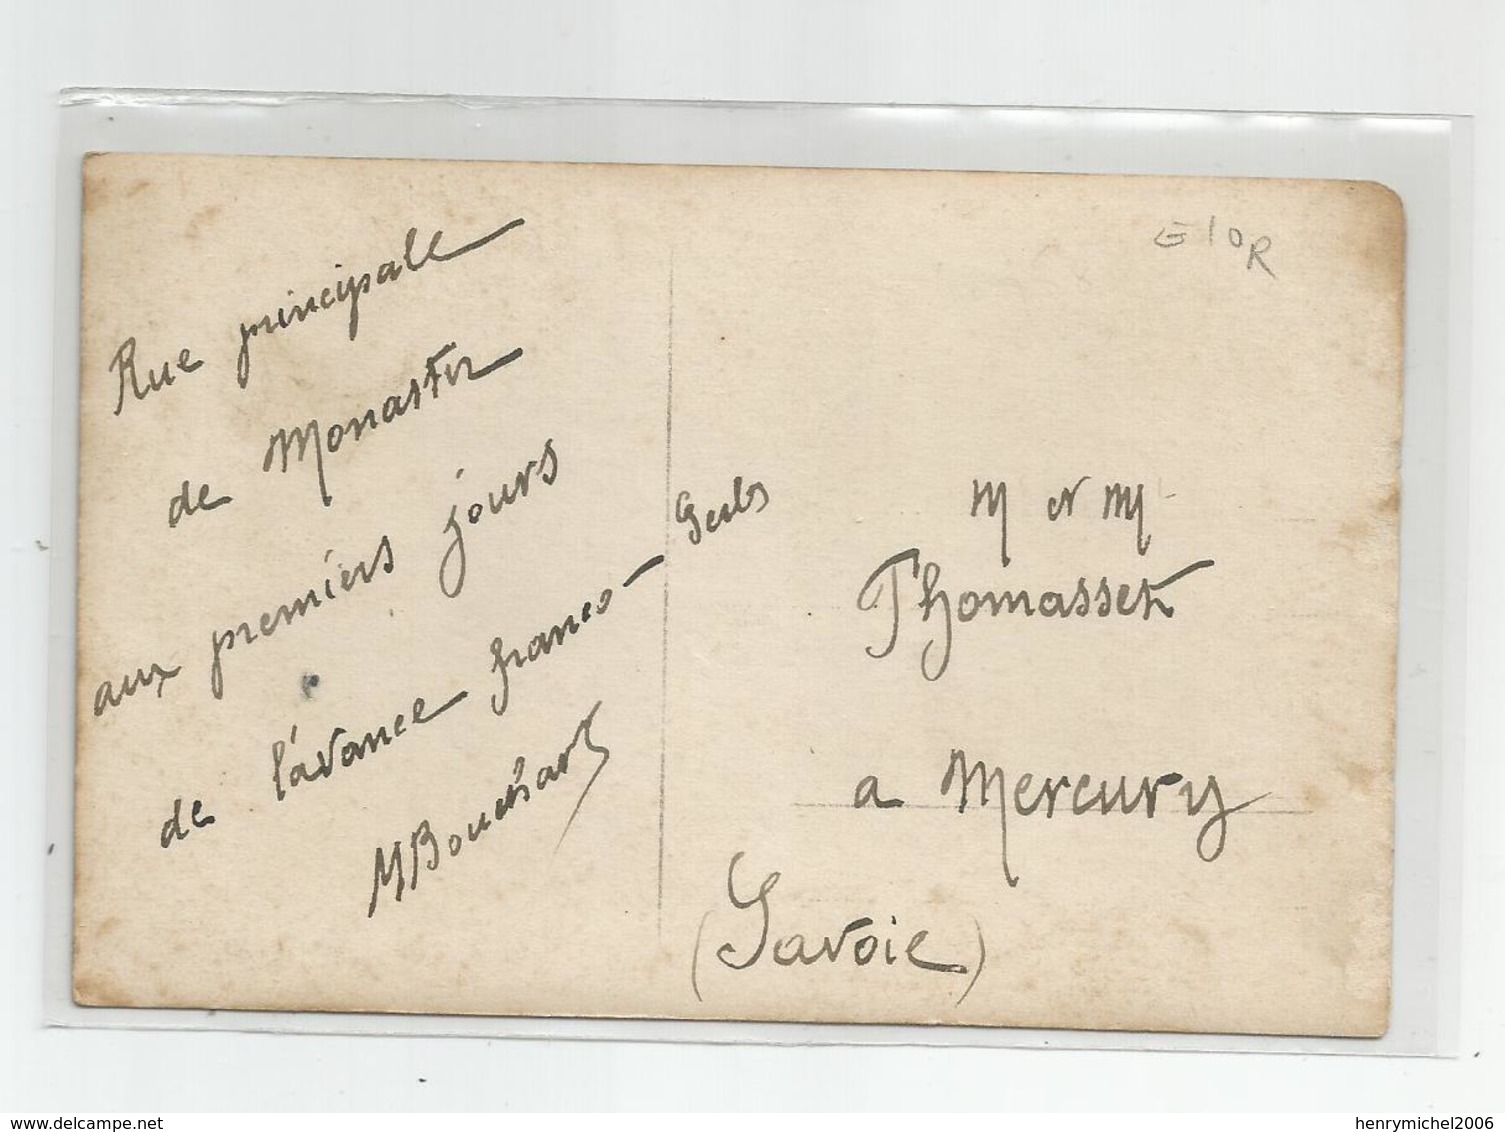 Rue principale
de Monastir
aux premiers jours
de l'avance franco-Serbs
M Bouchart
E 10 R
M et M
Thomasset
a Mercury
(Savoie)
henrymichel2006